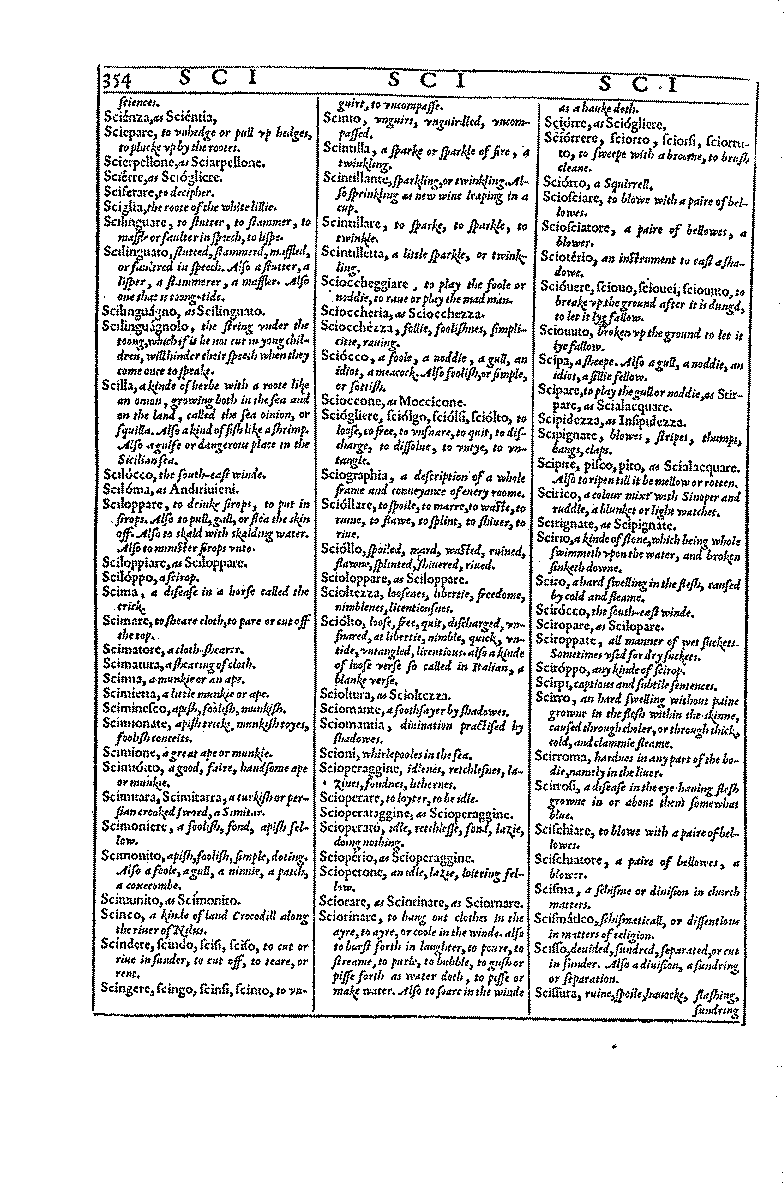 354 S C I S C I S C I
ſciences.
Sciénza, as Sciéntia,
Sciepare, to vnhedge or pull vp hedges,
to plucke vp by the rootes.
Scierpellone, as Sciarpellone.
Sciére, as Sciógliere.
Sciferare, to decipher.
Sciglia, the roote of the white lillie.
Scilinguare, to ſtutter, to ſtammer, to
maffle or faulter in ſpeech, to liſpe.
Scilinguato, ſtutted, ſtammerd, maffled,
or faultred in ſpeech. Alſo a ſtutter, a
liſper, a ſtammerer, a maffler. Alſo
one that is toong-tide.
Scilinguágno, as Scilinguato.
Scilinguágnolo, the ſtring vnder the
toong, which if it be not cut in yong chil-
dren, will hinder their ſpeech when they
come once to ſpeake.
Scilla, a kinde of herbe with a roote like
an onion, growing both in the ſea and
on the land, called the ſea oinion, or
ſquilla. Alſo a kind of fiſh like a ſhrimp.
Alſo a gulfe or dangerous place in the
Sicilian ſea.
Scilócco, the ſouth-eaſt winde.
Scilóma, as Andriuieni.
Sciloppare, to drinke ſirops, to put in
ſirops. Alſo to pull, gull, or flea the skin
off. Alſo to skald with skalding water.
Alſo to miniſter ſirops vnto.
Sciloppiare, as Sciloppare.
Scilóppo, a ſirop.
Scima, a diſeaſe in a horſe called the
crick.
Scimare, to ſheare cloth, to pare or cut off
the top.
Scimatore, a cloth ſhearer.
Scimatura, a ſhearing of cloth.
Scimia, a munkie or an ape.
Scimietta, a little munkie or ape.
Sciminéſco, apiſh, fooliſh, munkiſh.
Scimionate, apiſh tricks, munkiſh toyes,
fooliſh conceits.
Scimione, a great ape or munkie.
Scimióto, a good, faire, handſome ape
or munkie.
Scimitara, Scimitarra, a turkiſh or per-
ſian crooked ſword, a Simitar.
Scimoniére, a fooliſh, fond, apiſh fel-
low.
Scimonito, apiſh, fooliſh, ſimple, doting.
Alſo a foole, a gull, a ninnie, a patch,
a coxecombe.
Scimunito, as Scimonito.
Scinco, a kinde of land Crocodill along
the riuer of Nilus.
Scíndere, ſcindo, ſciſi, ſciſo, to cut or
riue in ſunder, to cut off, to teare, or
rent.
Scíngere, ſcingo, ſcinſi, ſcinto, to vn-
guirt, to vncompaſſe.
Scinto, vnguirt, vnguirded, vncom-
paſſed.
Scintilla, a ſparke or ſparkle of fire, a
twinkling.
Scintillante, ſparkling, or twinkling. Al-
ſo ſprinkling as new wine leaping in a
cup.
Scintillare, to ſparke, to ſparkle, to
twinkle.
Scintilletta, a little ſparkle, or twink-
ling.
Scioccheggiare, to play the foole or
noddie, to raue or play the mad man.
Scioccheria, as Sciocchezza.
Sciocchézza, follie, fooliſhnes, ſimpli-
citie, rauing.
Sciócco, a foole, a noddie, a gull, an
idiot, a meacock. Alſo fooliſh, or ſimple,
or ſottiſh.
Scioccone, as Moccicone.
Sciógliere, ſciólgo, ſciólſi, ſciólto, to
looſe, to free, to vnſnare, to quit, to diſ-
charge, to diſſolue, to vntye, to vn-
tangle.
Sciographia, a deſcription of a whole
frame and conueyance of euery roome.
Sciollare, to ſpoile, to marre, to waſte, to
ruine, to flawe, to ſplint, to ſhiuer, to
riue.
Sciollo, ſpoiled, mard, waſted, ruined,
flawne, ſplinted, ſhiuered, riued.
Scioloppare, as Sciloppare.
Scioltezza, looſenes, libertie, freedome,
nimblenes, licentiouſnes.
Sciólto, looſe, free, quit, diſcharged, vn-
ſnared, at libertie, nimble, quick, vn-
tide, vntangled, licentious. alſo a kinde
of looſe verſe ſo called in Italian, a
blanke verſe.
Scioltura, as Scioltezza.
Sciomante, a foothſayer by ſhadowes.
Sciomantia, diuination practiſed by
ſhadowes.
Scioni, whirlepooles in the ſea.
Scioperaggine, idlenes, retchleſnes, la-
zines, fondnes, lithernes.
Scioperare, to loyter, to be idle.
Scioperataggine, as Scioperaggine.
Scioperato, idle, retchleſſe, fond, lazie,
doing nothing.
Sciopério, as Scioperaggine.
Scioperone, an idle, lazie, loitering fel-
low.
Sciorare, as Sciorinare, as Sciornare.
Sciorinare, to hang out clothes in the
ayre, to ayre, or coole in the winde. alſo
to burſt forth in laughter, to poure, to
ſtreame, to purle, to bubble, to guſh or
piſſe forth as water doth, to piſſe or
make water. Alſo to ſoare in the winde
as a hauke doth.
Sciórre, as Sciógliere,
Sciórrere, ſciorto, ſciorſi, ſciorru-
to, to ſweepe with a broome, to bruſh
cleane.
Sciórto, a Squirrell.
Scioſciare, to blowe with a paire of bel-
lowes.
Scioſciatore, a paire of bellowes, a
blower.
Sciotério, an inſtrument to caſt a ſha-
dowe.
Scióuere, ſciouo, ſciouei, ſciouuto, to
breake vp the ground after it is dungd,
to let it lye fallow.
Sciouuto, broken vp the ground to let it
lye fallow.
Scipa, a ſheepe. Alſo a gull, a noddie, an
idiot, a ſillie fellow.
Scipare, to play the gull or noddie, as Stir-
pare, as Scialacquare.
Scipidezza, as Inſipidezza.
Scipignate, blowes, ſtripes, thumps,
bangs, claps.
Scipire, piſco, pito, as Scialacquare.
Alſo to ripen till it be mellow or rotten.
Scirico, a colour mixt with Sinoper and
ruddle, a blunket or light watchet.
Scirignate, as Scipignate.
Scirio, a kinde of ſtone, which being whole
ſwimmeth vpon the water, and broken
ſinketh downe.
Sciro, a hard ſwelling in the fleſh, cauſed
by cold and fleame.
Scirócco, the ſouth-eaſt winde.
Sciropare, as Scilopare.
Sciroppate, all manner of wet ſuckets.
Sometimes vſed for dry ſuckets.
Sciróppo, any kinde of ſcirop.
Scirpi, captious and ſubtile ſentences.
Scirro, an hard ſwelling without paine
growne in the fleſh within the skinne,
cauſed through choler, or through thick,
cold, and clammie fleame.
Scirroma, hardnes in any part of the bo-
die, namely in the liuer.
Sciroſi, a diſeaſe in the eye hauing fleſh
growne in or about them ſomewhat
blue.
Sciſchiare, to blowe with a paire of bel-
lowes.
Sciſchiatore, a paire of bellowes, a
blower.
Sciſma, a ſchiſme or diuiſion in church
matters.
Sciſmático, ſchiſmaticall, or diſſentious
in matters of religion.
Sciſſo, deuided, ſundred, ſeparated, or cut
in ſunder. Alſo a diuiſion, a ſundring
or ſeparation.
Sciſſura, ruine, ſpoile, hauocke, ſlaſhing,
ſundring